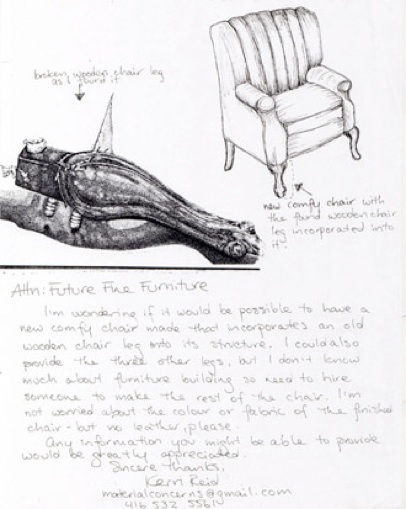 broken wooden chair leg
as found it
new comfy chair with
the found wooden chair
leg incorporated into
it.
Attn: Future Fine Furniture
I'm wondering if it would be possible to have a
new comfy chair made that incorporates an old
wooden chair leg into its structure. I could also
provide the three other legs, but I don't know
much about furniture building so need to hire
someone to make the rest of the chair. I'm
not worried about the colour or fabric of the finished
chair - but no leather, please.
Any information you might be able to provide
would be greatly appreciated.
Sincere Thanks,
Kerri Reid
materialconcerns@gmail.com
416 532 5561